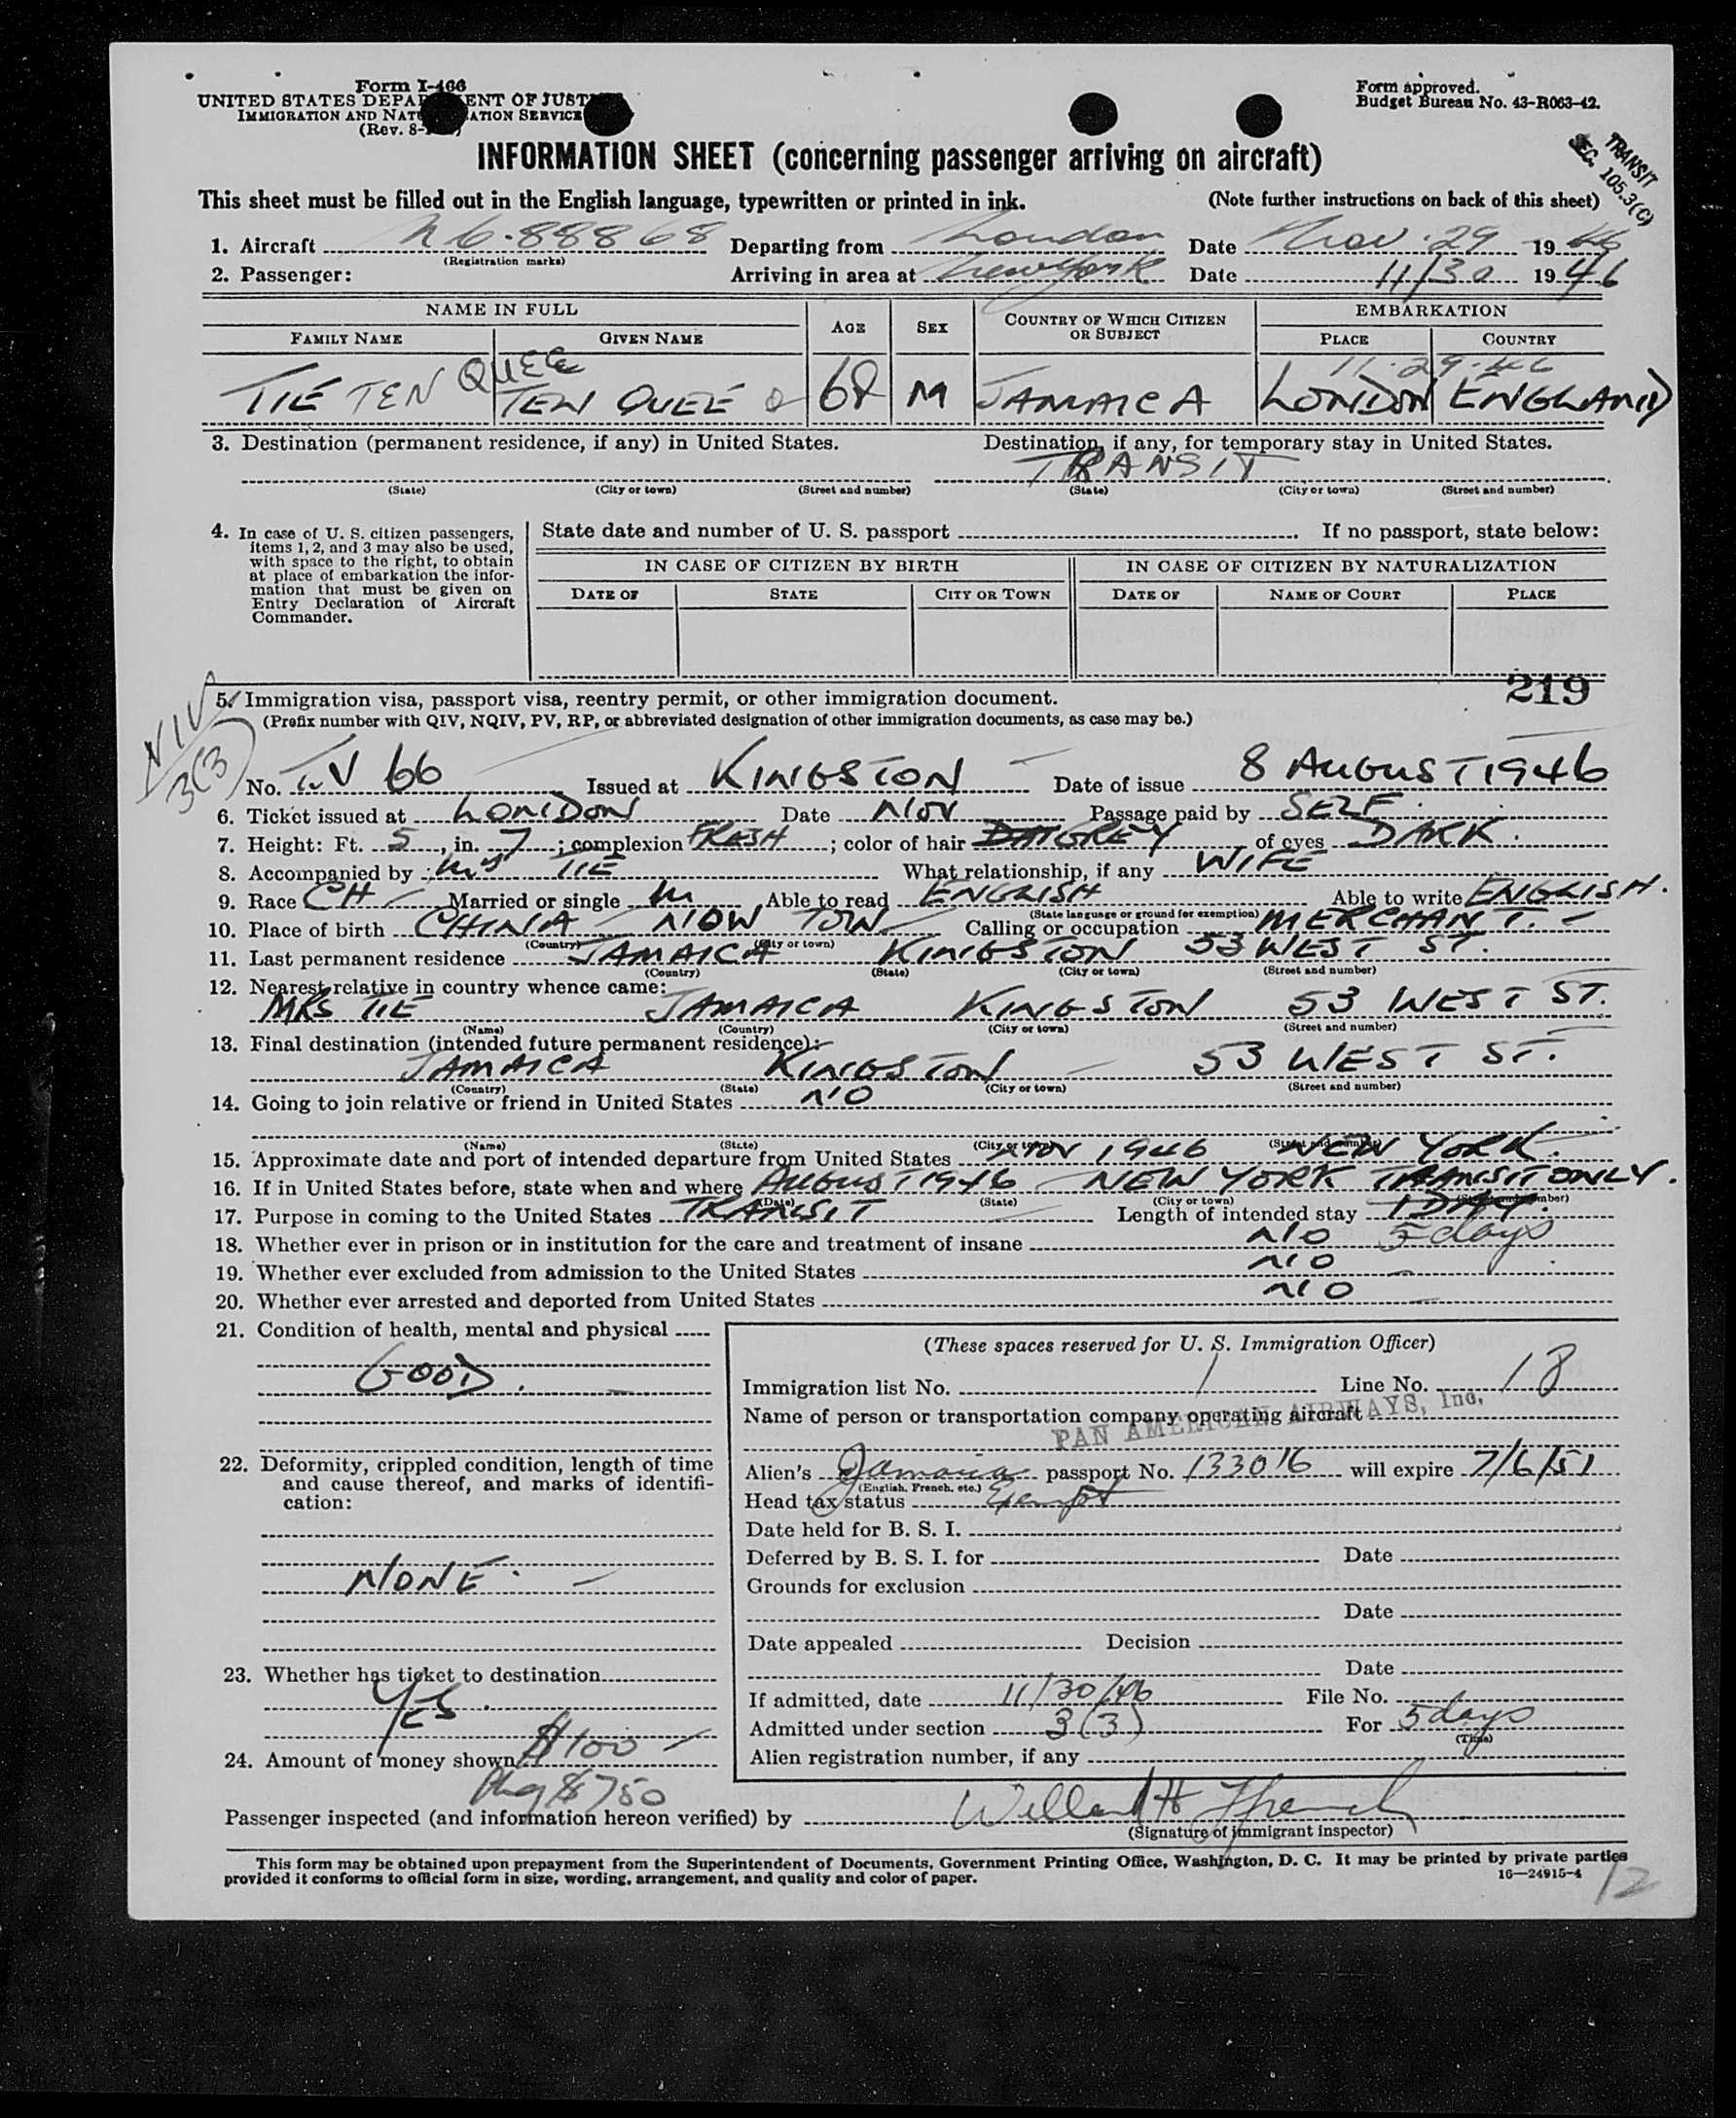 Form I-466
UNITED STATES DEPARTMENT OF JUSTICE
IMMIGRATION AND NATURALIZATION SERVICE
(Rev. 8-
Form approved.
Budget Bureau No. 43-R063-42.
TRANSIT
SEC. 105.3(C)
INFORMATION SHEET (concerning passenger arriving on aircraft)
This sheet must be filled out in the English language, typewritten or printed in ink. (Note further instructions on back of this sheet)
1. Aircraft 88868 Departing from London Date Nov. 29 1946
(Registration marks)
2. Passenger: Arriving in area at New York Date 11/30 1946
NAME IN FULL AGE SEX COUNTRY OF WHICH CITIZEN OR SUBJECT EMBARKATION
FAMILY NAME GIVEN NAME PLACE COUNTRY
QUEE 11-29-46
TIE TEN TEN QUEE 68 M JAMAICA LONDON ENGLAND
3. Destination (permanent residence, if any) in United States. Destination, if any, for temporary stay in United States.
TRANSIT
(State) (City or town) (Street and number) (State) (City or town) (Street and number)
4. In case of U. S. citizen passengers,
items 1, 2, and 3 may also be used,
with space to the right, to obtain
at place of embarkation the infor-
mation that must be given on
Entry Declaration of Aircraft
Commander.
State date and number of U. S. passport If no passport, state below:
IN CASE OF CITIZEN BY BIRTH IN CASE OF CITIZEN BY NATURALIZATION
DATE OF STATE CITY OR TOWN DATE OF NAME OF COURT PLACE
219
5. Immigration visa, passport visa, reentry permit, or other immigration document.
(Prefix number with QIV, NQIV, PV, RP, or abbreviated designation of other immigration documents, as case may be.)
NIV
3(3)
No. TV 66 Issued at KINGSTON Date of issue 8 AUGUST 1946
6. Ticket issued at LONDON Date NOV Passage paid by SELF.
7. Height: Ft. 5, in. 7; complexion FRESH; color of hair GREY of eyes DARK.
8. Accompanied by MRS TIE What relationship, if any WIFE
9. Race CH Married or single M Able to read ENGLISH Able to write ENGLISH.
(State language or ground for exemption)
10. Place of birth CHINA NOW TOW Calling or occupation MERCHANT.
(Country) (City or town)
11. Last permanent residence JAMAICA KINGSTON 53 WEST ST.
(Country) (State) (City or town) (Street and number)
12. Nearest relative in country whence came:
MRS TIE JAMAICA KINGSTON 53 WEST ST.
(Name) (Country) (City or town) (Street and number)
13. Final destination (intended future permanent residence):
JAMAICA KINGSTON 53 WEST ST.
(Country) (State) (City or town) (Street and number)
14. Going to join relative or friend in United States NO
(Name) (State) (City or town) (Street and number)
15. Approximate date and port of intended departure from United States NOV 1946 NEW YORK.
16. If in United States before, state when and where AUGUST 1946 NEW YORK TRANSIT ONLY.
(Date) (State) (City or town) (Street and number)
17. Purpose in coming to the United States TRANSIT Length of intended stay 1 DAY.
18. Whether ever in prison or in institution for the care and treatment of insane NO 5 days
19. Whether ever excluded from admission to the United States NO
20. Whether ever arrested and deported from United States NO
21. Condition of health, mental and physical
GOOD.
22. Deformity, crippled condition, length of time
and cause thereof, and marks of identifi-
cation:
NONE.
23. Whether has ticket to destination
YES.
24. Amount of money shown $100
$750
(These spaces reserved for U. S. Immigration Officer)
Immigration list No. 1 Line No. 18
Name of person or transportation company operating aircraft
PAN AMERICAN AIRWAYS, Inc.
Alien's Jamaica passport No. 133016 will expire 7/6/51
(English, French, etc.)
Head tax status Exempt
Date held for B. S. I.
Deferred by B. S. I. for Date
Grounds for exclusion
Date
Date appealed Decision
Date
If admitted, date 11/30/46 File No.
Admitted under section 3(3) For 5 days
(Time)
Alien registration number, if any
Passenger inspected (and information hereon verified) by Willard H
(Signature of immigrant inspector)
This form may be obtained upon prepayment from the Superintendent of Documents, Government Printing Office, Washington, D. C. It may be printed by private parties
provided it conforms to official form in size, wording, arrangement, and quality and color of paper. 16—24915-4
12